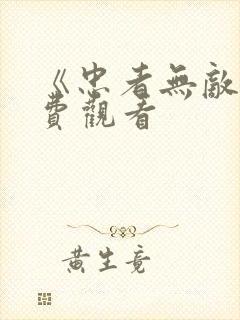 《忠者無敵
費觀看
黃生竟